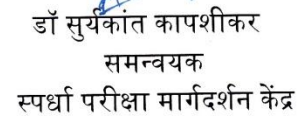 डॉ सुर्यकांत कापशीकर
समन्वयक
स्पर्धा परीक्षा मार्गदर्शन केंद्र